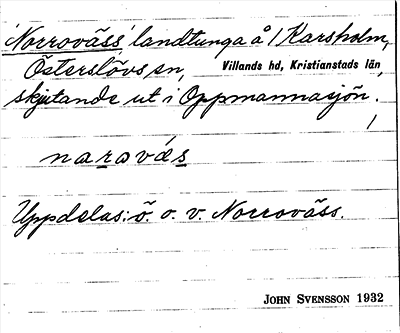 'Norroväss' landtunga å / Karsholm,
Österslövs sn, Villands hd, Kristianstads län,
skjutande ut i Oppmannasjön.
/
narovæs
Uppdelas: ö. o. v. Norroväss.
JOHN SVENSSON 1932